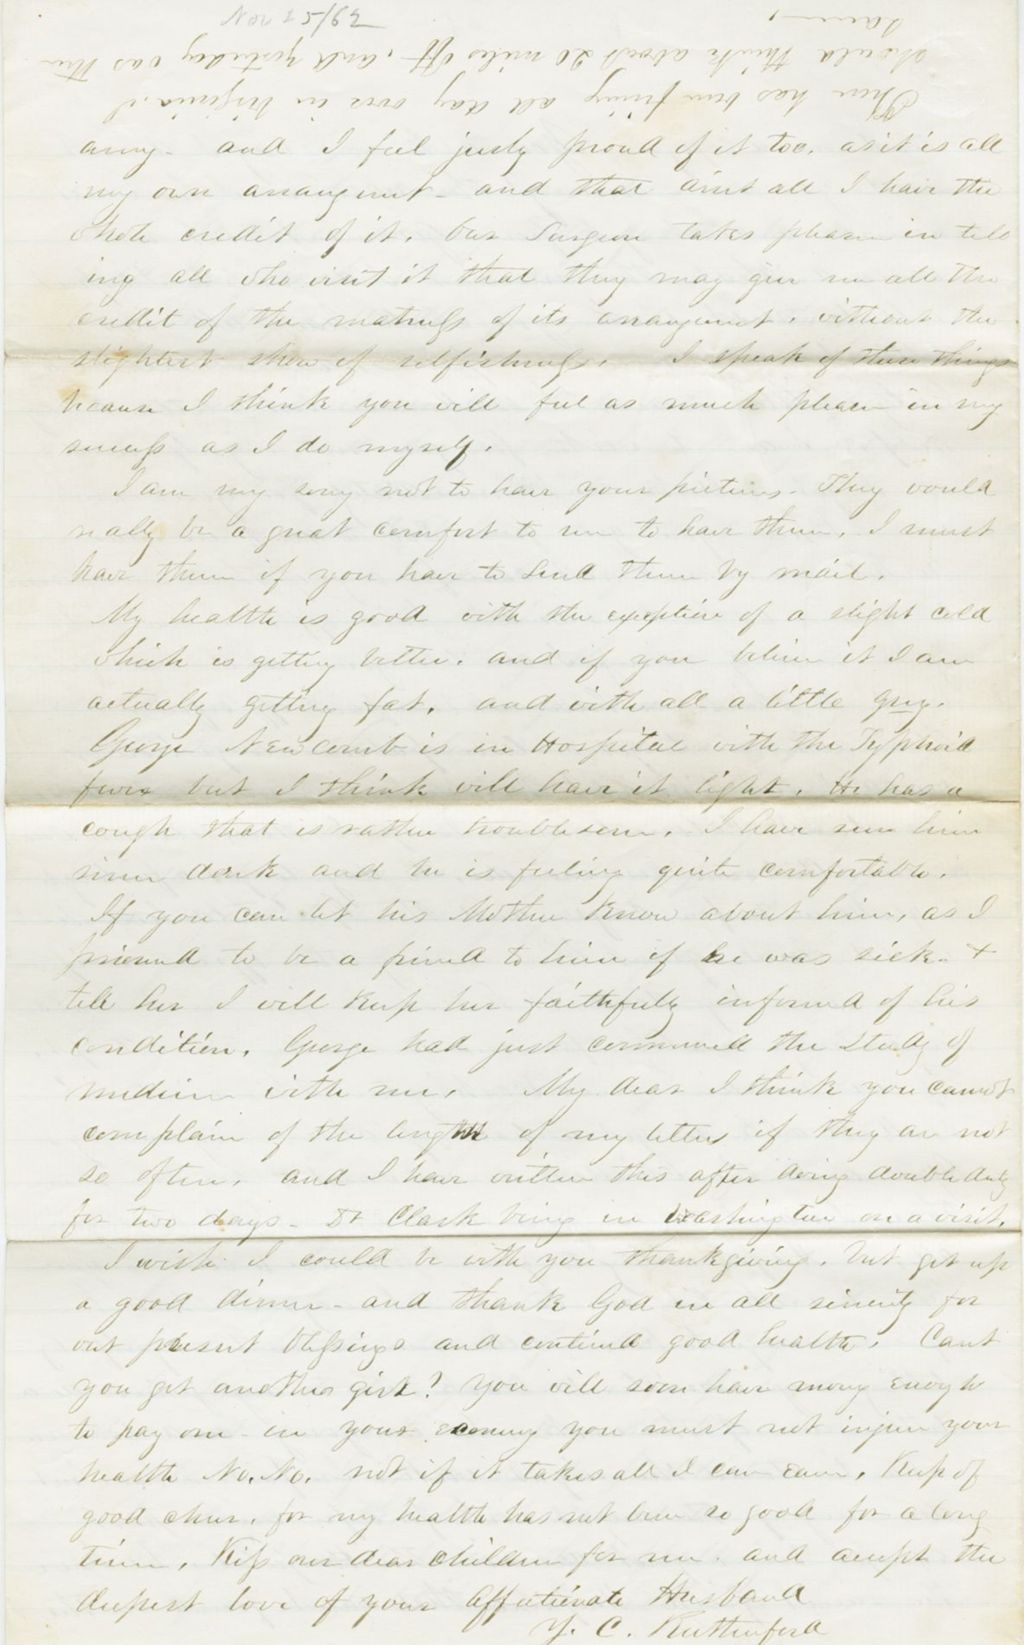 Nov 25/62
There has been firing all day over in Virginia. I
should think about 20 miles off, and yesterday was the
same,
army - and I feel justly proud of it too. as it is all
my own arrangement - and that aint all I have the
whole credit of it. Our Surgeon takes pleasure in tell
ing all who visit it that they may give me all the
credit of the neatness of its arrangement. without the
slightest show of selfishness. I speak of these things
because I think you will feel as much pleasure in my
success as I do myself.
I am very sorry not to have your pictures. They would
really be a great comfort to me to have them, I must
have them if you have to send them by mail.
My health is good with the exception of a slight cold
which is getting better. and if you believe it I am
actually getting fat, and with all a little grey.
George Newcomb is in Hospital with the Typhoid
fever but I think will have it light. He has a
cough that is rather troublesome. I have seen him
since dark and he is feeling quite comfortable.
If you can let his Mother know about him, as I
promised to be a friend to him if he was sick. +
tell her I will keep her faithfuly informed of his
condition. George had just commenced the Study of
medicine with me. My dear I think you cannot
complain of the length of my letters if they are not
so often. and I have written this after doing double duty
for two days - Dr Clark being in Washington on a visit.
I wish I could be with you thanksgiving. but get up
a good dinner - and thank God in all sincerity for
our present blessings and continued good health. Cant
you get another girl? You will soon have money enough
to pay one - in your economy you must not injure your
health No. No. not if it takes all I can earn. Keep of
good cheer. for my health has not been so good for a long
time. Kiss our dear children for me. and accept the
deepest love of your Affectionate Husband
J. C. Rutherford